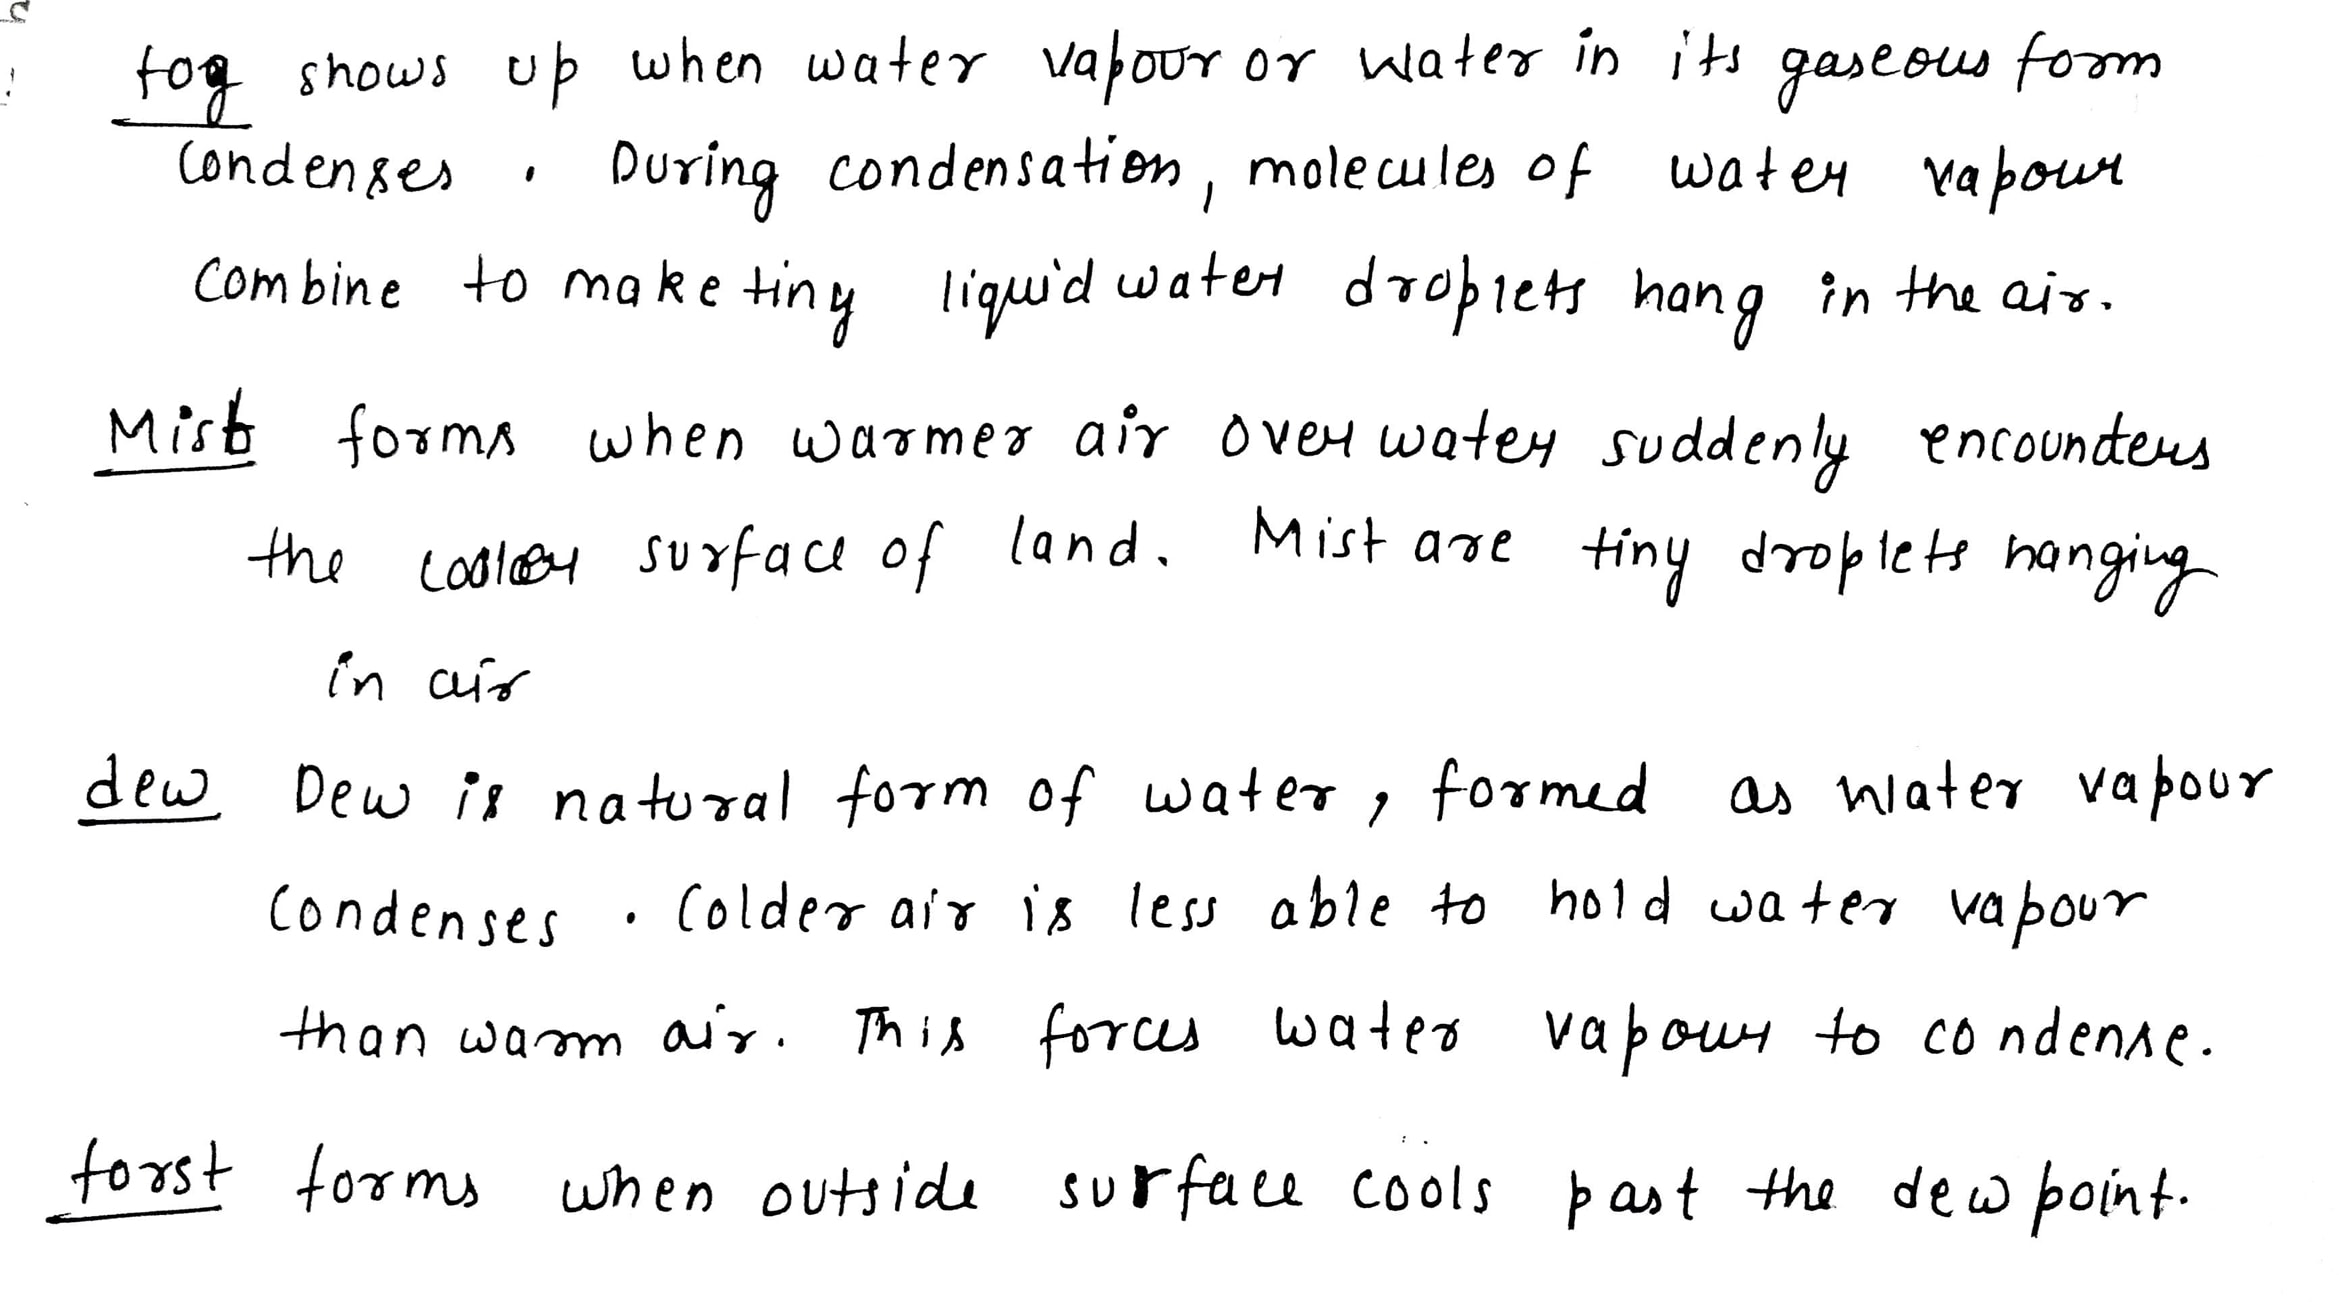 fog shows up when water vapour or water in its gaseous form
condenses . During condensation, molecules of water vapour
combine to make tiny liquid water droplets hang in the air.
Mist forms when warmer air over water suddenly encounters
the cooler surface of land. Mist are tiny droplets hanging
in air
dew Dew is natural form of water, formed as water vapour
condenses . Colder air is less able to hold water vapour
than warm air. This forces water vapour to condense.
forst forms when outside surface cools past the dew point.